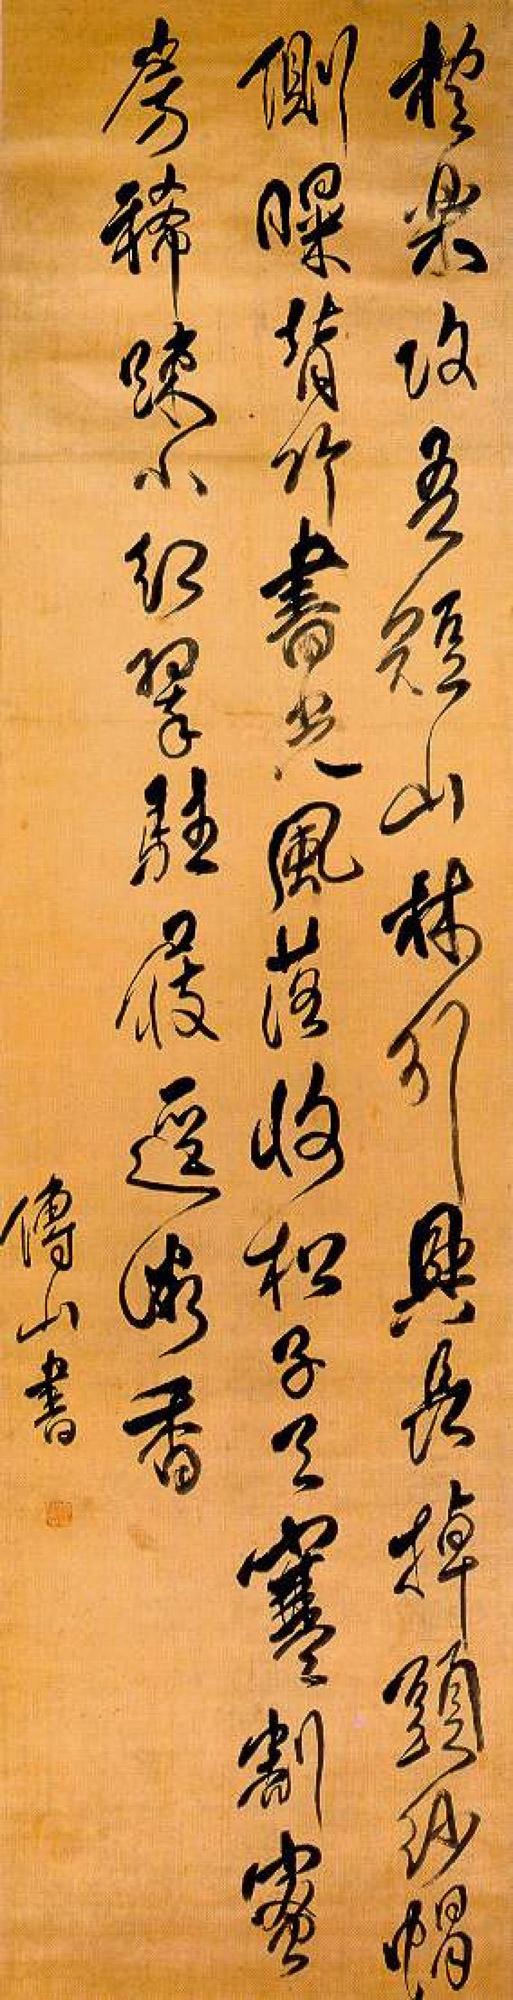 禮樂攻吾短山林引興長掉頭紗帽
側曝背竹書光風落收松子天寒割蜜
房稀疎小紅翠駐屐逕微香
傅山書